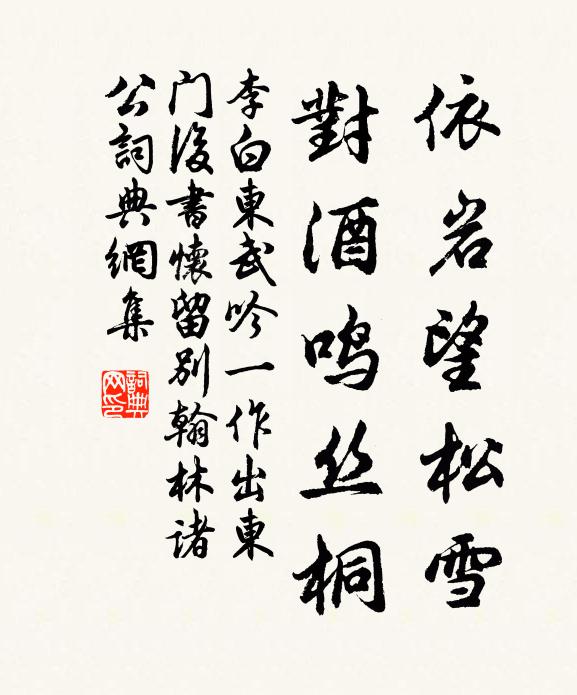 依岩望松雪
對酒鸣丝桐
李白東武吟一作出東
门後書懷留別翰林諸
公詞典網集
詞典
网印